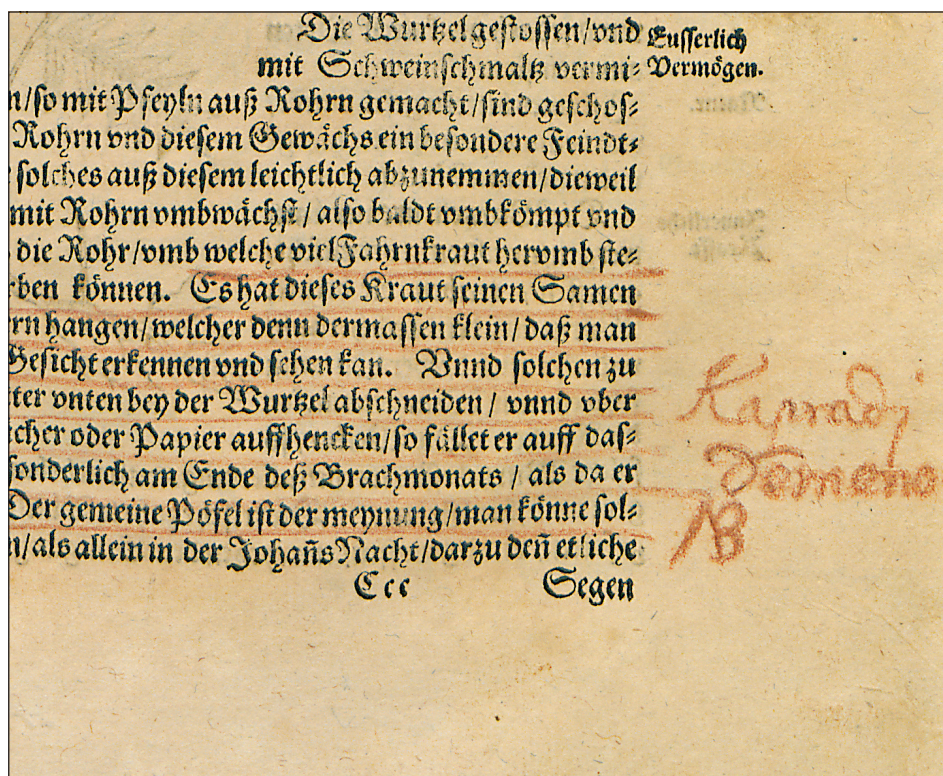 Die Wurtzel gestossen/vnd
mit Schweinschmaltz vermi⸗
Eusserlich
Vermögen.
n/so mit Pfeyln auß Rohrn gemacht/sind geschos⸗
Rohrn vnd diesem Gewächs ein besondere Feindt⸗
solches auß diesem leichtlich abzunemmen/dieweil
mit Rohrn vmbwächst/also baldt vmbkömpt vnd
die Rohr/vmb welche viel Fahrnkraut hervmb ste⸗
rben können. Es hat dieses Kraut seinen Samen
ern hangen/welcher denn dermassen klein/daß man
Gesicht erkennen vnd sehen kan. Vnnd solchen zu
tter vnten bey der Wurtzel abschneiden/vnnd vber
cher oder Papier auffhencken/so fället er auff das⸗
sonderlich am Ende deß Brachmonats/als da er
Der gemeine Pöfel ist der meynung/man könne sol⸗
n/als allein in der Johañs Nacht/darzu deñ etliche
Ccc Segen
NB